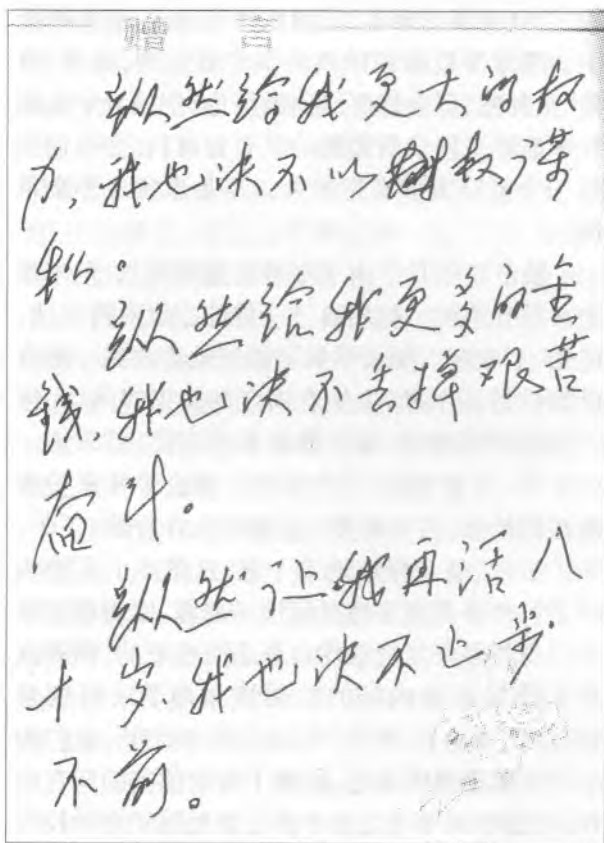 赠 言
纵然给我更大的权
力，我也决不以权谋
私。
纵然给我更多的金
钱，我也决不丢掉艰苦
奋斗。
纵然让我再活八
十岁，我也决不止步
不前。